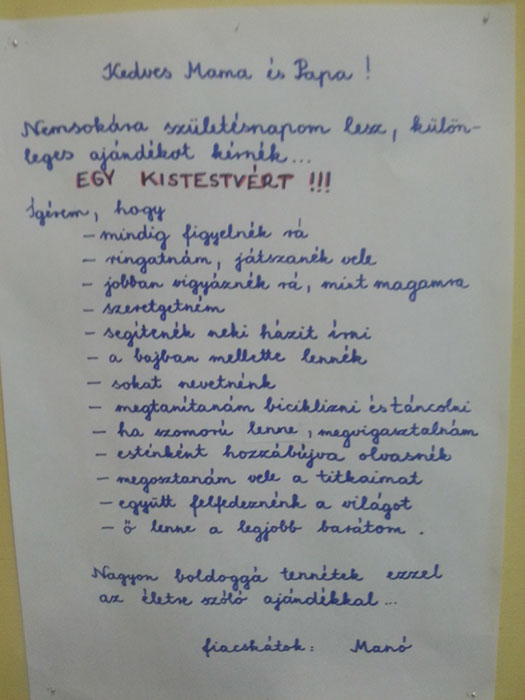 Kedves Mama és Papa !
Nemsokára születésnapom lesz, külön-
leges ajándékot kérnék...
EGY KISTESTVÉRT !!!
Ígérem, hogy
– mindig figyelnék rá
– ringatnám, játszanék vele
– jobban vigyáznék rá, mint magamra
– szeretgetném
– segítenék neki házit írni
– a bajban mellette lennék
– sokat nevetnénk
– megtanítanám biciklizni és táncolni
– ha szomorú lenne, megvigasztalnám
– esténként hozzábújva olvasnék
– megosztanám vele a titkaimat
– együtt felfedeznénk a világot
– ő lenne a legjobb barátom .
Nagyon boldoggá tennétek ezzel
az életre szóló ajándékkal...
fiacskátok: Manó